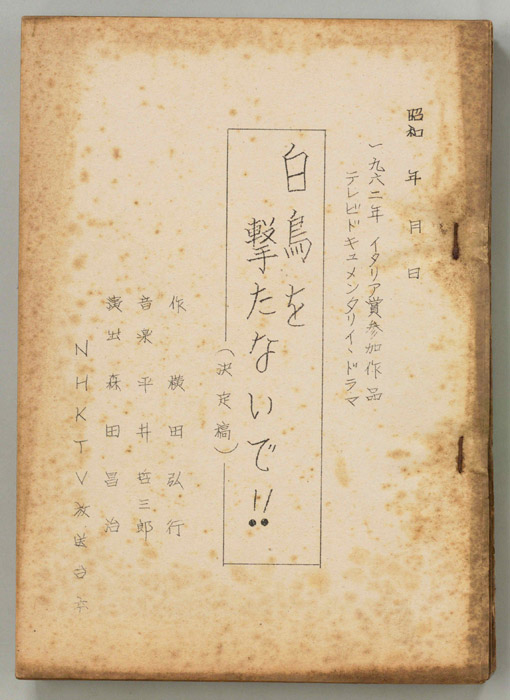 昭和　年　月　日
一九六二年　イタリア賞参加作品
テレビドキュメンタリイ・ドラマ
白鳥を
撃たないで!!
（決定稿）
作　横田弘行
音楽　平井哲三郎
演出　森田昌治
NHKTV放送台本